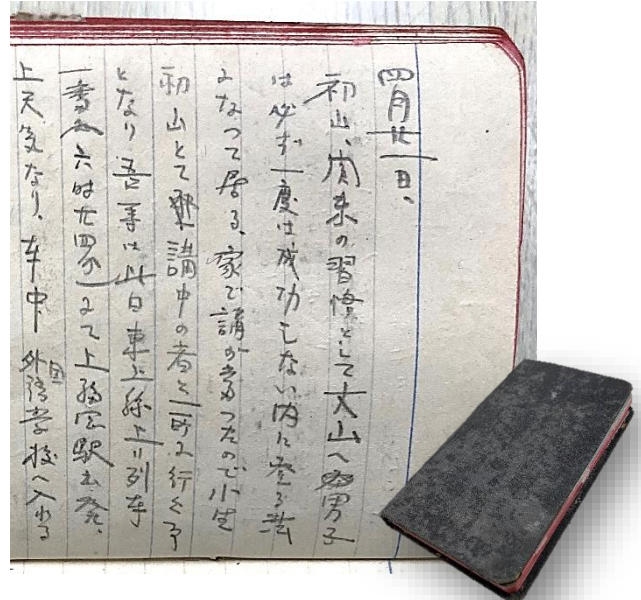 四月廿一日、
初山、関東の習慣として大山へ男子
は必ず一度は成功しない内に登る
になつて居る、家で講が当つたので小生
初山とて講中の者と一所に行く事
となり 吾等は此日東上線上り列車
一番 六時廿四分にて上福岡駅出発、
上天気なり、車中 外国語学校へ入れる